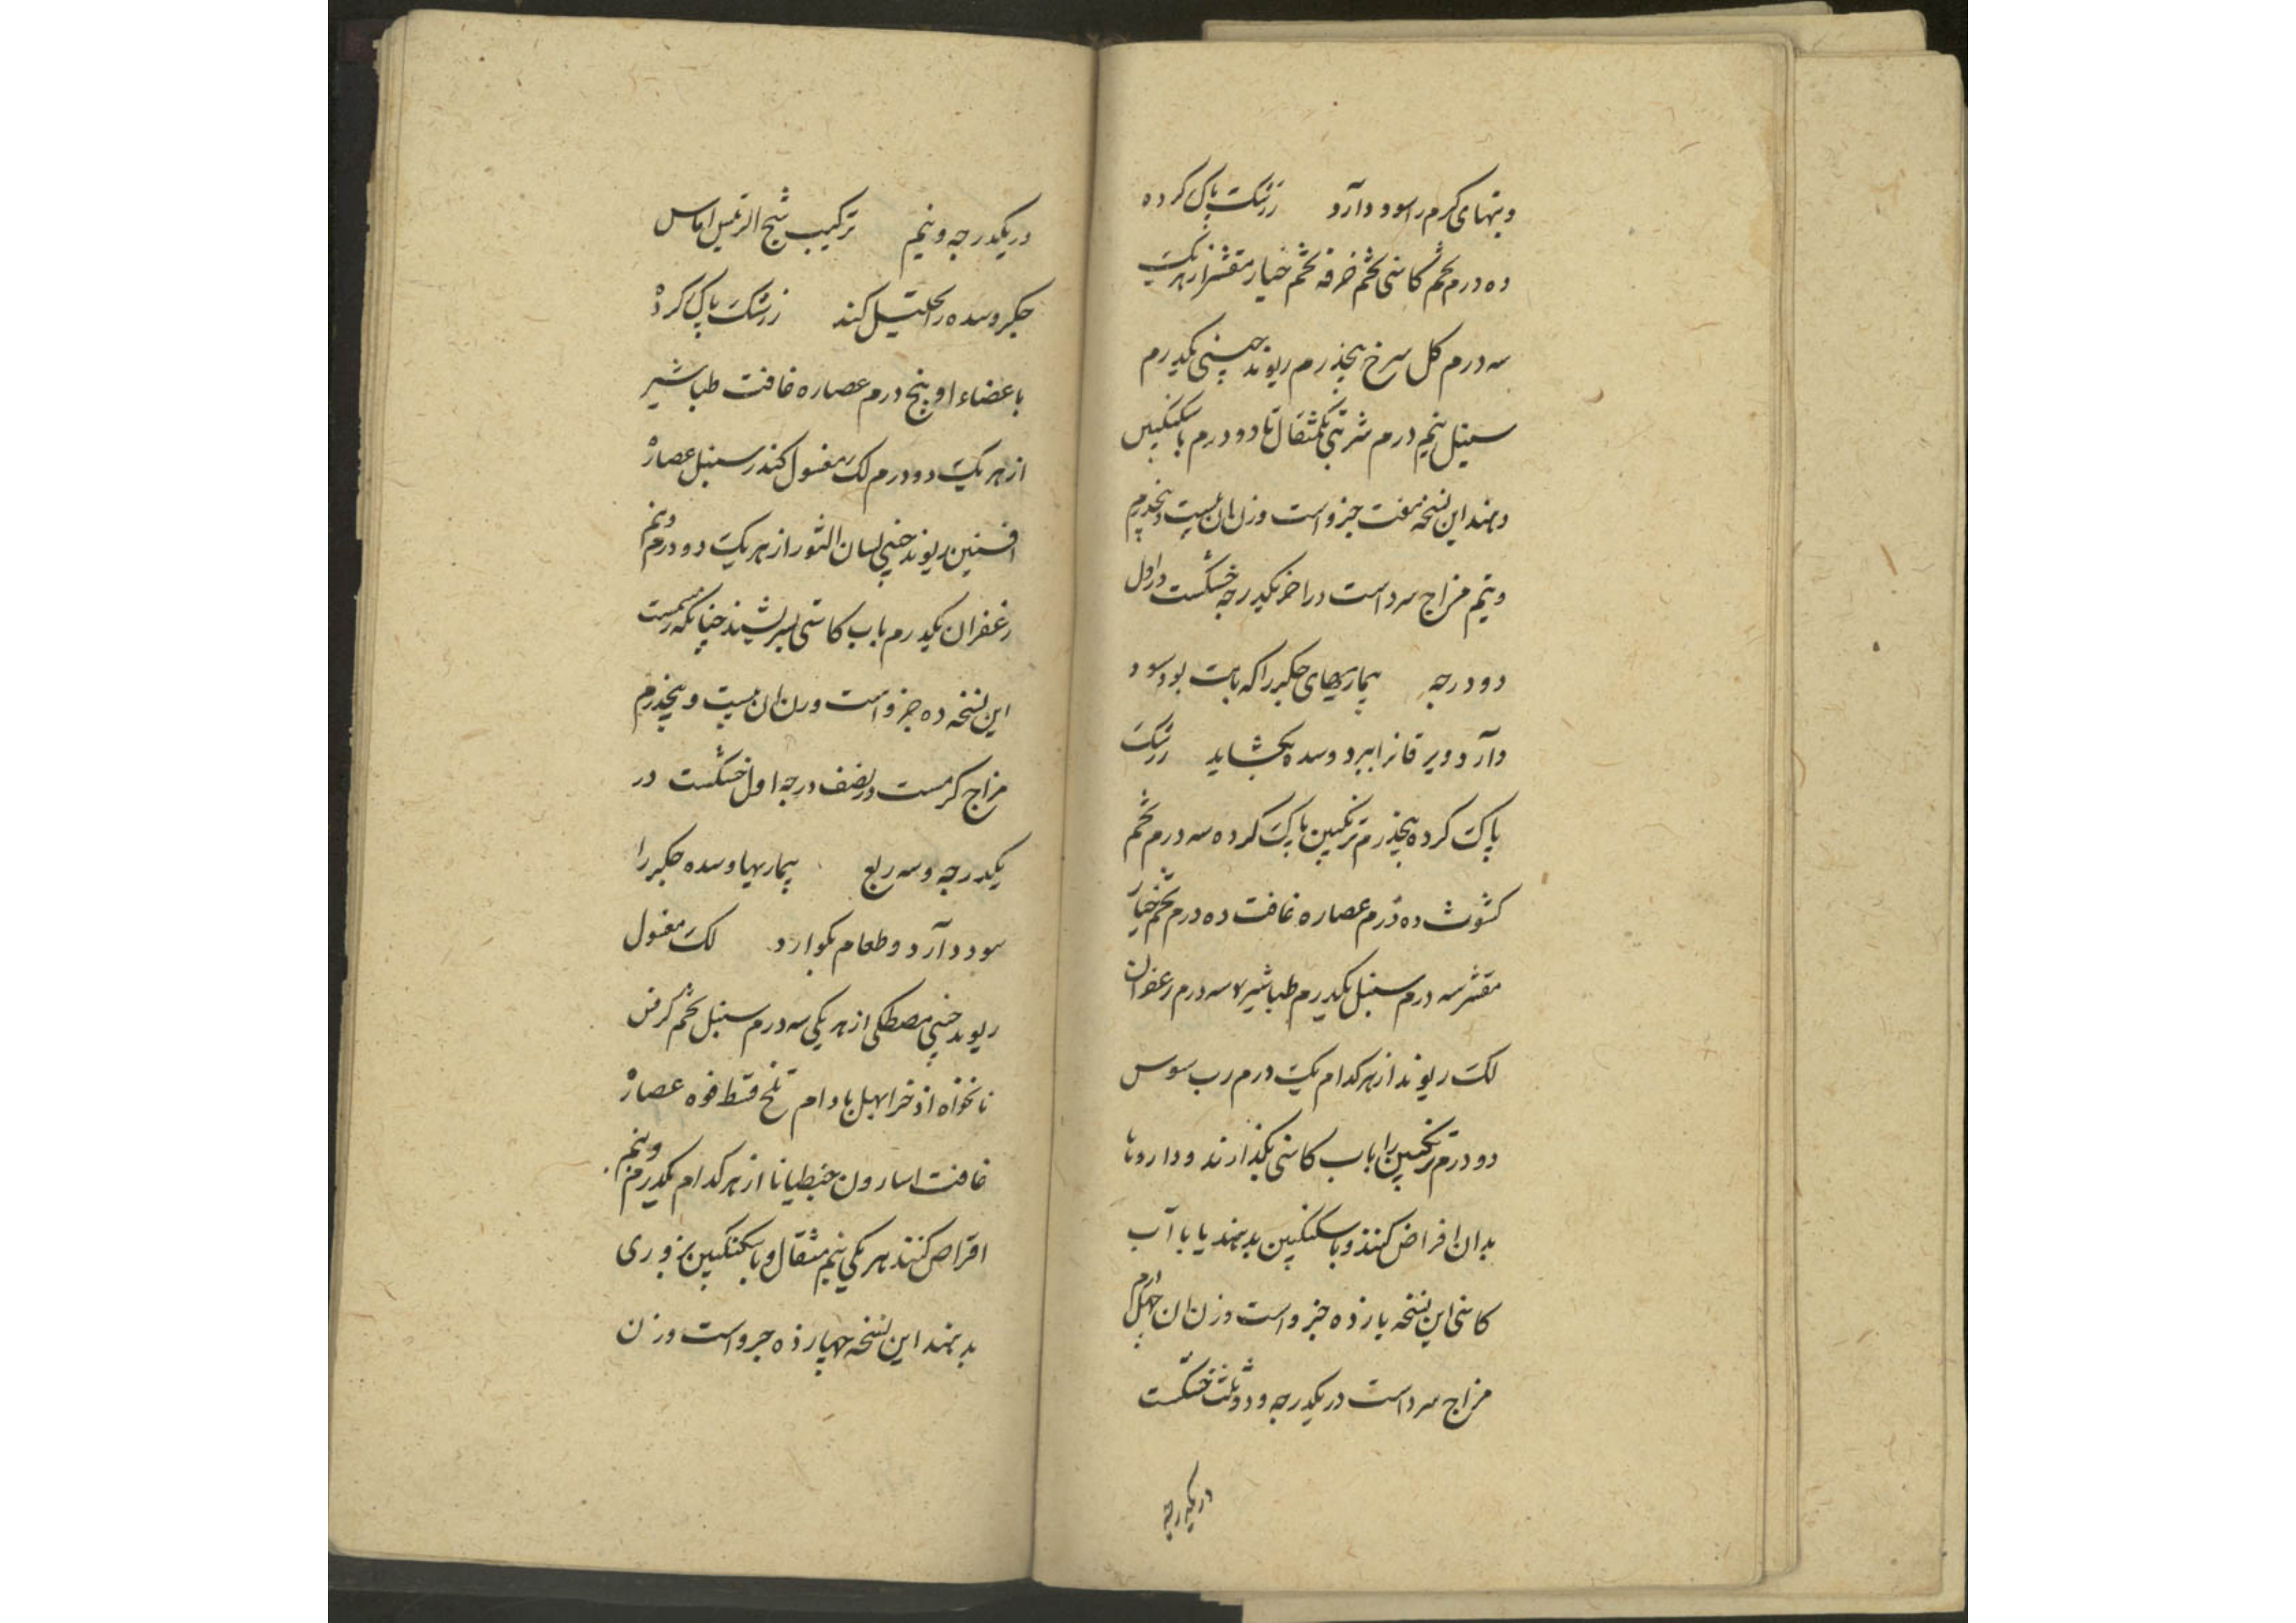 وتبهای کرم را سود دارد زرشک پاک کرده
ده درم تخم کاسنی تخم خرفه تخم خیار مقشر از هر یک
سه درم کل سرخ پنجدرم ریوند چینی یکدرم
سنبل نیم درم شربتی یکمثقال تا دو درم با سکنکبین
دهند این نسخه هفت جزو است وزن ان بیست و پنجدرم
ونیم مزاج سرد است در اخر یکدرجه خشکست در اول
دو درجه بیماریهای جکر را که با تب بود سود
دارد و یرقانرا ببرد و سده بکشاید زرشک
پاک کرده پنجدرم ترنکبین پاک کرده سه درم تخم
کشوث ده درم عصاره غافت ده درم تخم خیار
مقشر سه درم سنبل یکدرم طباشیر سه درم زعفران
لک ریوند از هر کدام یک درم رب سوس
دو درم ترنکبین را باب کاسنی بکذارند و داروها
بدان اقراص کنند و با سکنکبین بدهند یا با آب
کاسنی این نسخه یازده جزو است وزن ان چهل درم
مزاج سرد است در یکدرجه و دو ثلث خشکست
در یکدرجه
در یکدرجه ونیم ترکیب شیخ الرئیس اماس
جکر و سده را تحلیل کند زرشک پاک کرده
با عضاء او پنج درم عصاره غافت طباشیر
از هر یک دو درم لک مغسول کندر سنبل عصاره
افسنتین ریوند چینی لسان الثور از هر یک دو درم ونیم
زعفران یکدرم باب کاسنی بسریشند چنانکه رسمست
این نسخه ده جزو است وزن ان بیست و پنجدرم
مزاج کرمست در نصف درجه اول خشکست در
یکدرجه و سه ربع بیماریها و سده جکر را
سود دارد و طعام بکوارد لک مغسول
ریوند چینی مصطکی از هر یکی سه درم سنبل تخم کرفس
نانخواه اذخر ابهل بادام تلخ قسط فوه عصاره
غافت اسارون جنطیانا از هر کدام یکدرم ونیم
اقراص کنند هر یکی نیم مثقال و با سکنکبین بزوری
بدهند این نسخه چهارده جزو است وزن